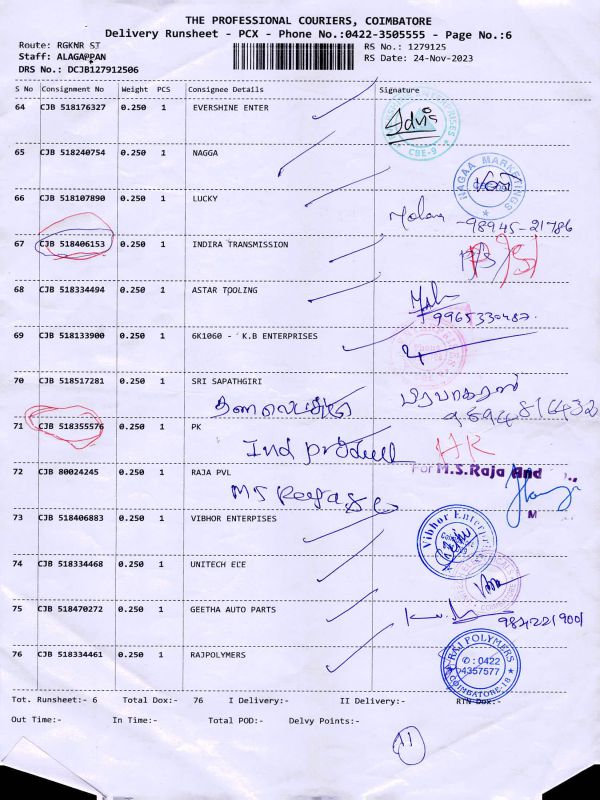 THE PROFESSIONAL COURIERS, COIMBATORE
Delivery Runsheet - PCX - Phone No.:0422-3505555 - Page No.:6
Route: RGKNR ST RS No.: 1279125
Staff: ALAGA@PAN RS Date: 24-Nov-2023
DRS No.: DCJB127912506
S No Consignment No Weight PCS Consignee Details Signature
64 CJB 518176327 0.250 1 EVERSHINE ENTER
CBE-9
65 CJB 518240754 0.250 1 NAGGA
NAGAA MARKETINGS
66 CJB 518107890 0.250 1 LUCKY
-98945-21786
67 CJB 518406153 0.250 1 INDIRA TRANSMISSION
68 CJB 518334494 0.250 1 ASTAR TOOLING
9965330487
69 CJB 518133900 0.250 1 6K1060 - K.B ENTERPRISES
70 CJB 518517281 0.250 1 SRI SAPATHGIRI
பிரபாகரன்
9894816432
71 CJB 518355576 0.250 1 PK
Ind product
For M.S.Raja And
72 CJB 80024245 0.250 1 RAJA PVL
M
73 CJB 518406883 0.250 1 VIBHOR ENTERPISES
Vibhor Enterpri
74 CJB 518334468 0.250 1 UNITECH ECE
75 CJB 518470272 0.250 1 GEETHA AUTO PARTS
9842219001
76 CJB 518334461 0.250 1 RAJPOLYMERS
RAJ POLYMERS
✆: 0422
4357577
COIMBATORE-18
Tot. Runsheet:- 6 Total Dox:- 76 I Delivery:- II Delivery:- RTN Dox:-
Out Time:- In Time:- Total POD:- Delvy Points:-
11